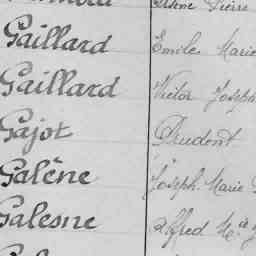 Arsène Pierre
Gaillard Emile Marie
Gaillard Victor Joseph
Gajot Prudent
Galêne Joseph Marie
Galesne Alfred M.ie J